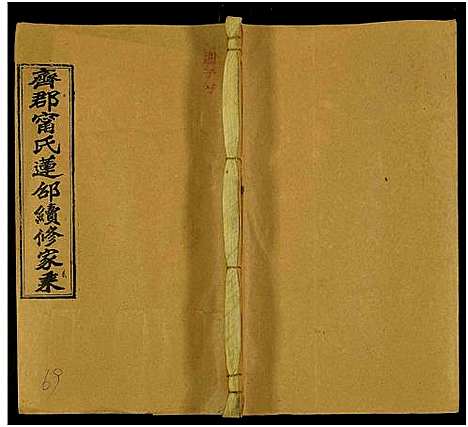 齊郡甯氏蓮邵續修家乘
69